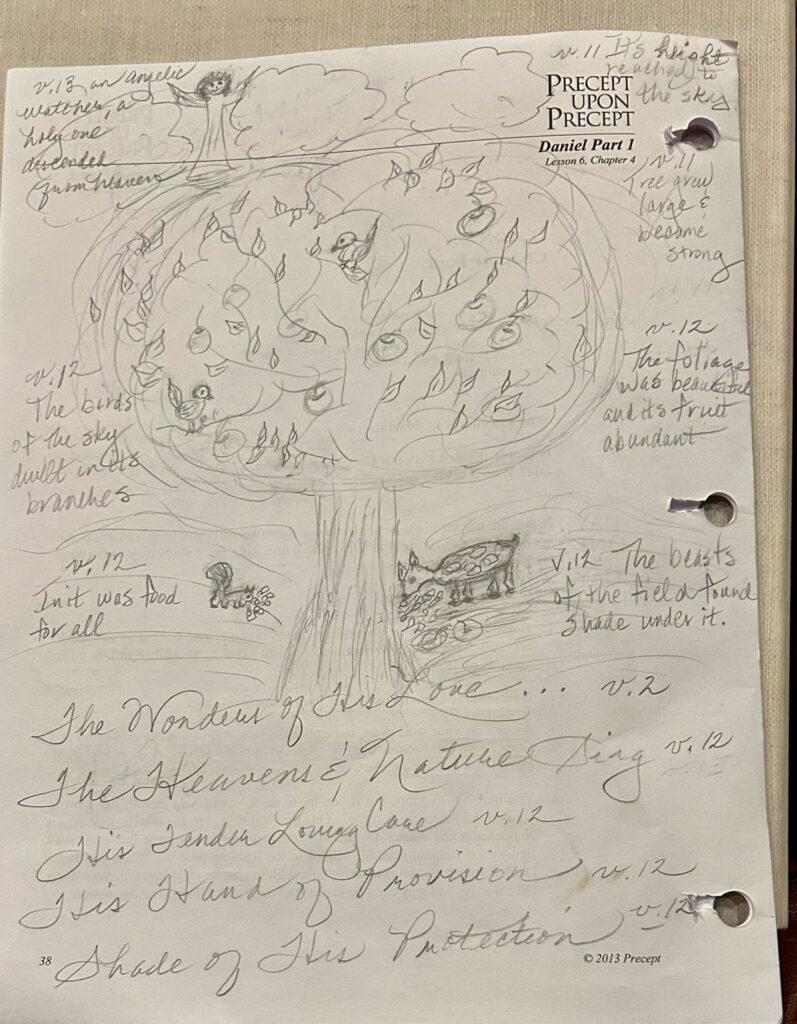 v.13 an angelic
watcher, a
holy one
descended
from heaven
v.11 Its height
reached to
the sky.
PRECEPT
UPON
PRECEPT
Daniel Part 1
Lesson 6, Chapter 4
v.11
Tree grew
large &
became
strong
v.12
The foliage
was beautiful
and its fruit
abundant
v.12
The birds
of the sky
dwelt in its
branches
v.12
In it was food
for all
v.12 The beasts
of the field found
shade under it.
The Wonders of His Love... v.2
The Heavens & Nature Sing v.12
His Tender Loving Care v.12
His Hand of Provision v.12
Shade of His Protection v.12
38
© 2013 Precept